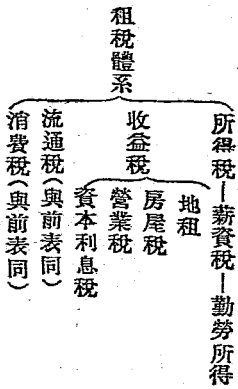 租稅體系
所得稅—薪資稅—勤勞所得
收益稅
地租
房屋稅
營業稅
資本利息稅
流通稅(與前表同)
消費稅(與前表同)